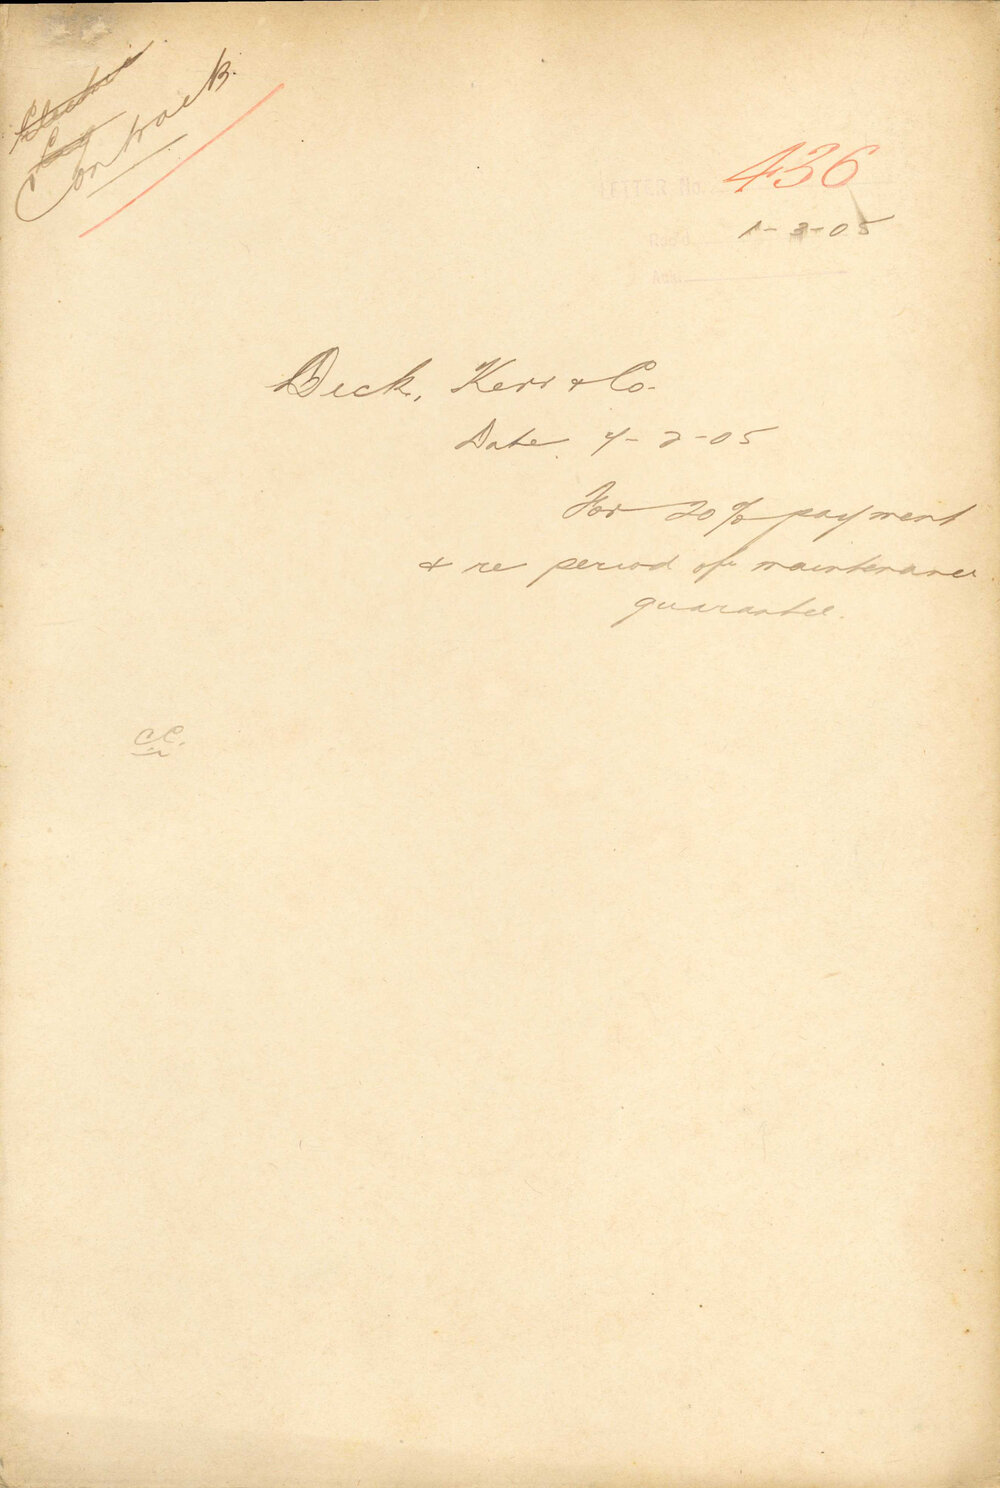 Electric
Contract B.
LETTER No. 436
Rec'd 1-3-05
Ans.
Beck, Kerr & Co.
Date 7-2-05
For 20% payment
& re period of maintenance
guarantee.
CC.